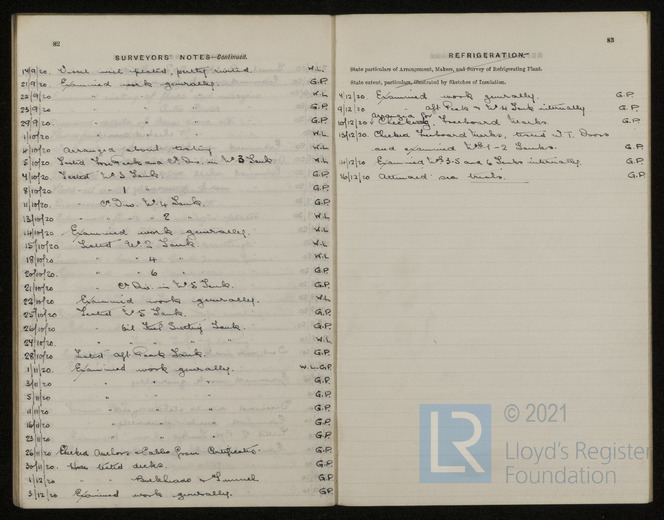 82
SURVEYORS' NOTES—Continued.
14/9/20. Vessel well plated, partly riveted. W.L.
21/9/20. Examined work generally. G.P.
22/9/20 " " " W.L
25/9/20 " " " G.P.
29/9/20. " " " G.P.
1/10/20. " " " W.L
4/10/20 Arranged about testing W.L
5/10/20. Tested in No 3 Tank W.L
7/10/20. Tested No 3 Tank G.P.
8/10/20. " 1 " G.P.
11/10/20. " No 4 Tank. G.P.
13/10/20 " " 2 " W.L
14/10/20. Examined work generally. W.L
15/10/20. Tested No 2 Tank. W.L
18/10/20 " " 4 " W.L
20/10/20. " " 6 " G.P.
21/10/20 " in No 5 Tank. G.P.
22/10/20. Examined work generally. W.L
25/10/20. Tested No 5 Tank. G.P.
26/10/20. " Oil Fuel Settling Tank. G.P.
27/10/20. " " " " W.L
28/10/20 Tested Aft Peak Tank. G.P.
1/11/20. Examined work generally. W.L. G.P.
5/11/20 " " " G.P.
" " " G.P.
11/11/20 " " " G.P.
16/11/20 " " " G.P.
23/11/20 " " " G.P.
26/11/20 Checked Anchors & Cables from Certificates. G.P.
30/11/20. Hose tested decks. G.P.
1/12/20 " " Bulkheads & Tunnel G.P.
3/12/20 Examined work generally. G.P.
83
REFRIGERATION.
State particulars of Arrangement, Makers, and Survey of Refrigerating Plant.
State extent, particulars, illustrated by Sketches of Insulation.
4/12/20 Examined work generally. G.P.
9/12/20 " Aft Peak & No 4 Tank internally G.P.
Arranged for
10/12/20 Checking Freeboard Marks. G.P.
13/12/20 Checked Freeboard Marks, tested W.T. Doors
and examined Nos 1-2 Tanks. G.P.
14/12/20 Examined Nos 3-5 and 6 Tanks internally. G.P.
16/12/20 Attended sea trials. G.P.
LR
© 2021
Lloyd's Register
Foundation